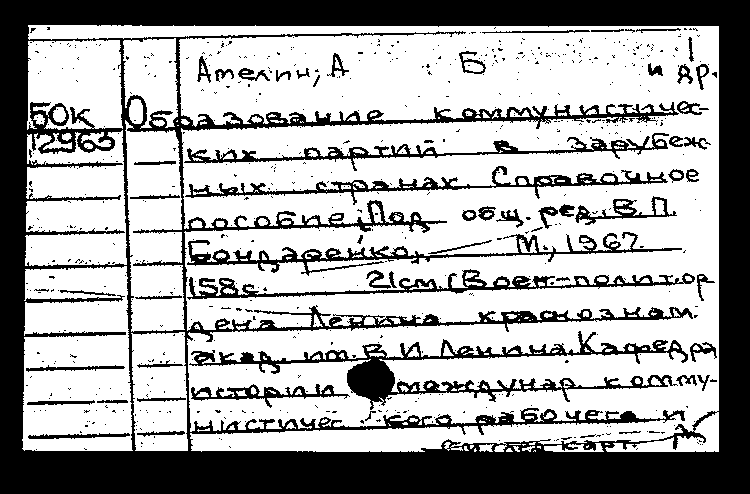 Амелин, А Б и др.
БОК Образование коммунистичес-
12965 ких партий в зарубеж
ных странах. Справочное
пособие. Под общ. ред. В. П.
Бондаренко, М., 1967
158с. 21см (Воен-полит.ор
дена Ленина краснознам.
акад. им. В. И. Ленина. Кафедра
истории междунар. комму-
нистичес кого, рабочего и
См след карт.